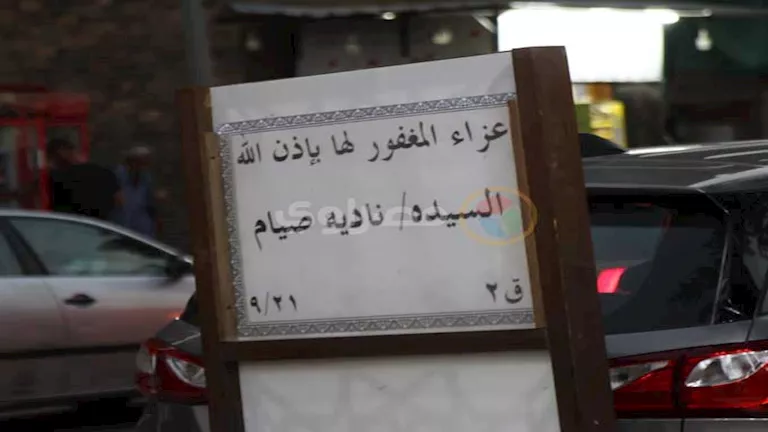 عزاء المغفور لها بإذن الله
السيده/ ناديه صيام
ق ٢
٩/٢١
مصراوي